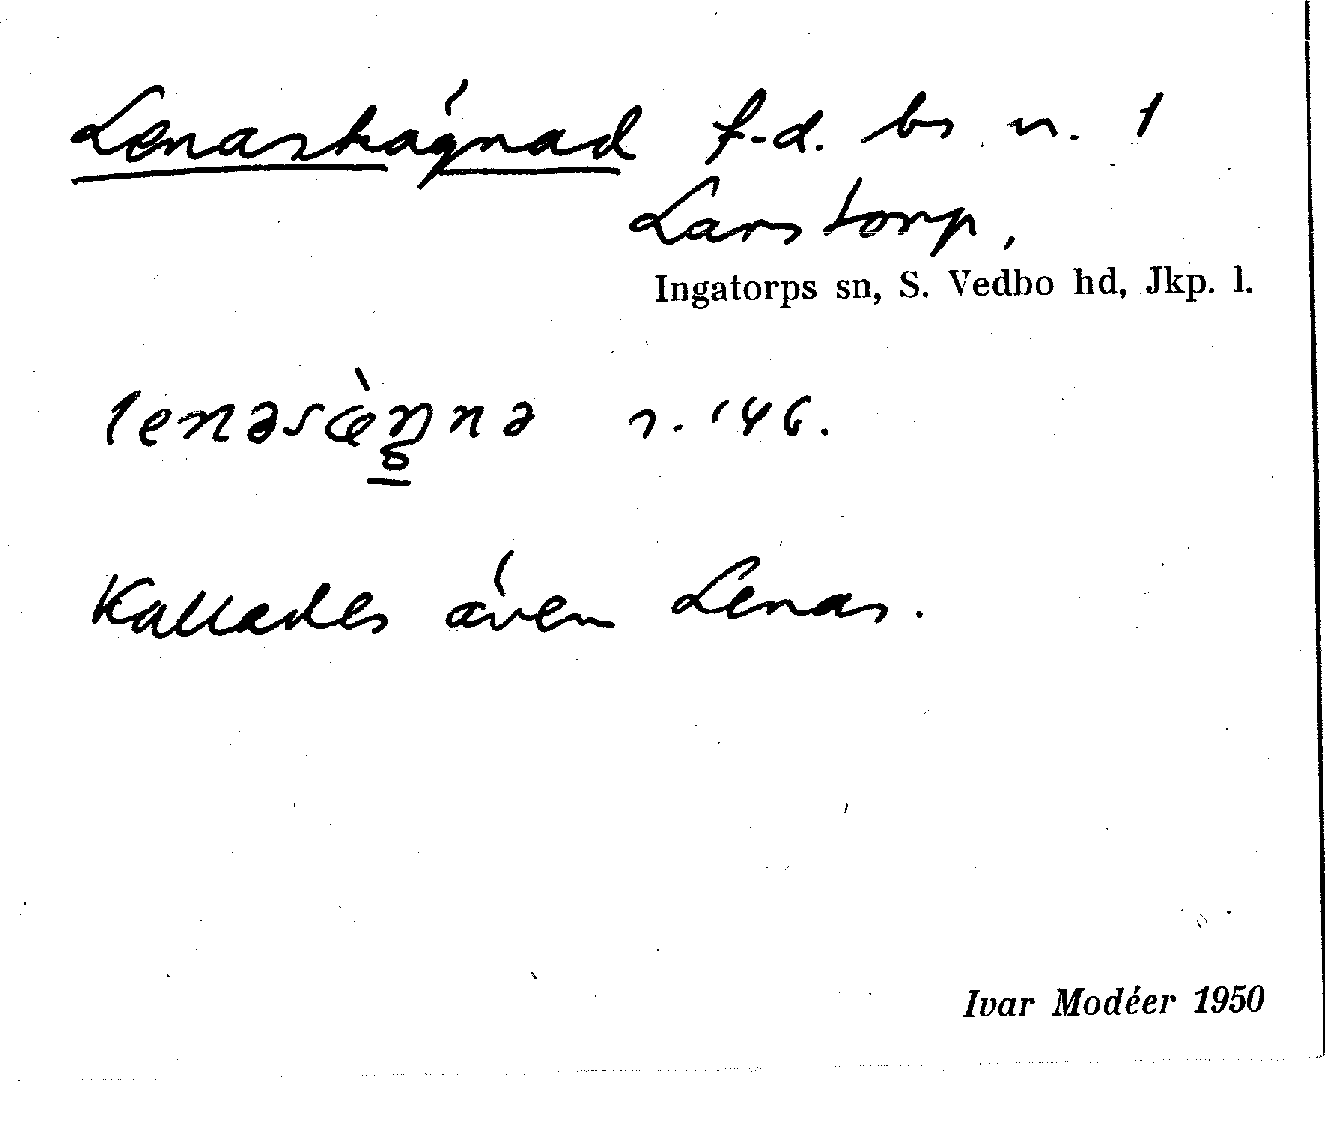 Lenashägnad f.d. bs n. 1
Larstorp,
Ingatorps sn, S. Vedbo hd, Jkp. l.
lenəsæ̀ŋnə n. 146.
Kallades även Lenas.
Ivar Modéer 1950